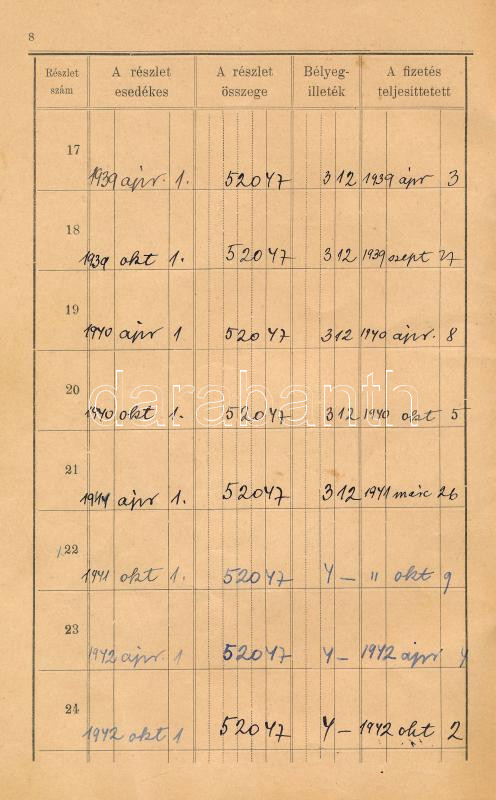 8
Részlet szám A részlet esedékes A részlet összege Bélyeg-illeték A fizetés teljesittetett
17 1939 ápr. 1. 52047 312 1939 ápr 3
18 1939 okt 1. 52047 312 1939 szept 27
19 1940 ápr 1 52047 312 1940 ápr. 8
20 1940 okt 1. 52047 312 1940 okt 5
darabanth
21 1941 ápr 1. 52047 312 1941 márc 26
22 1941 okt 1. 52047 4 — " okt 9
23 1942 ápr. 1 52047 4 — 1942 ápr 4
24 1942 okt 1 52047 4 — 1942 okt 2